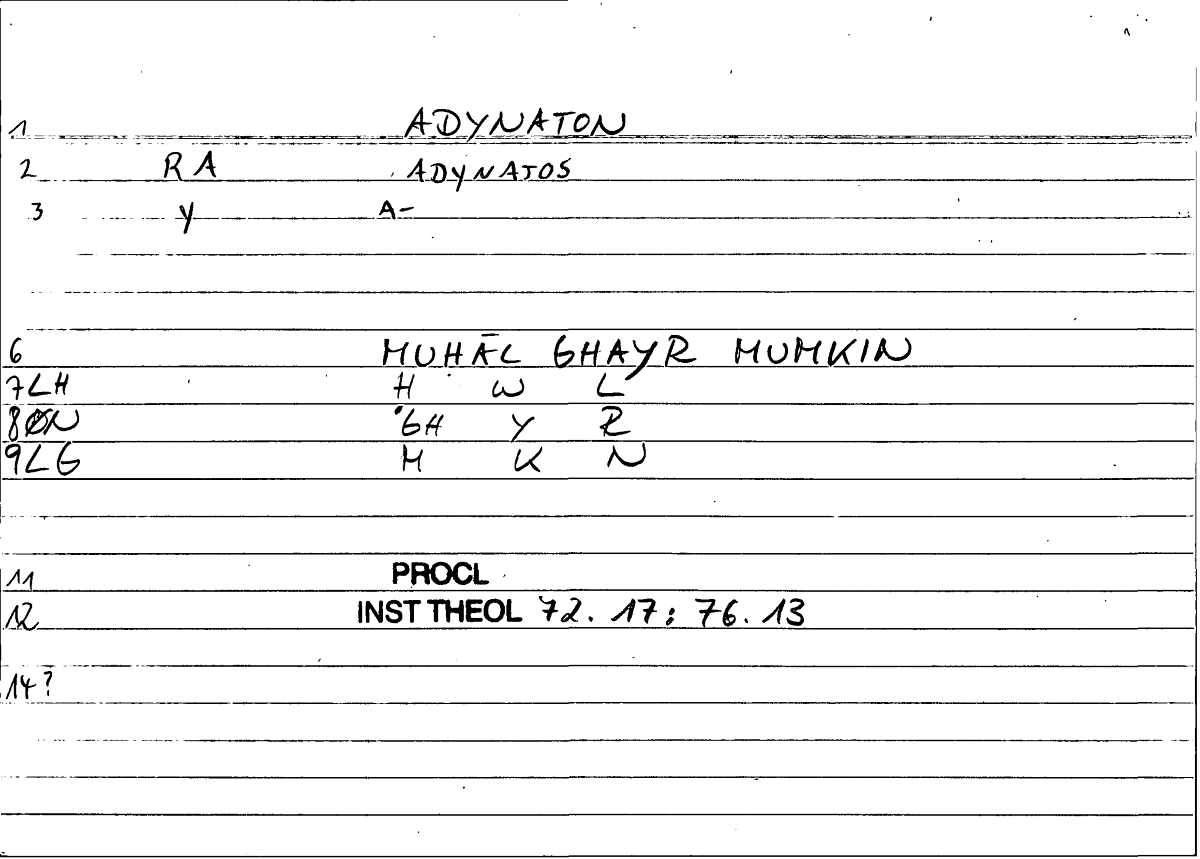 1 ADYNATON
2 RA ADYNATOS
3 Y A-
6 MUHĀL GHAYR MUMKIN
7LH H W L
8ØN GH Y R
9LG M K N
11 PROCL
12 INST THEOL 72. 17; 76. 13
14?